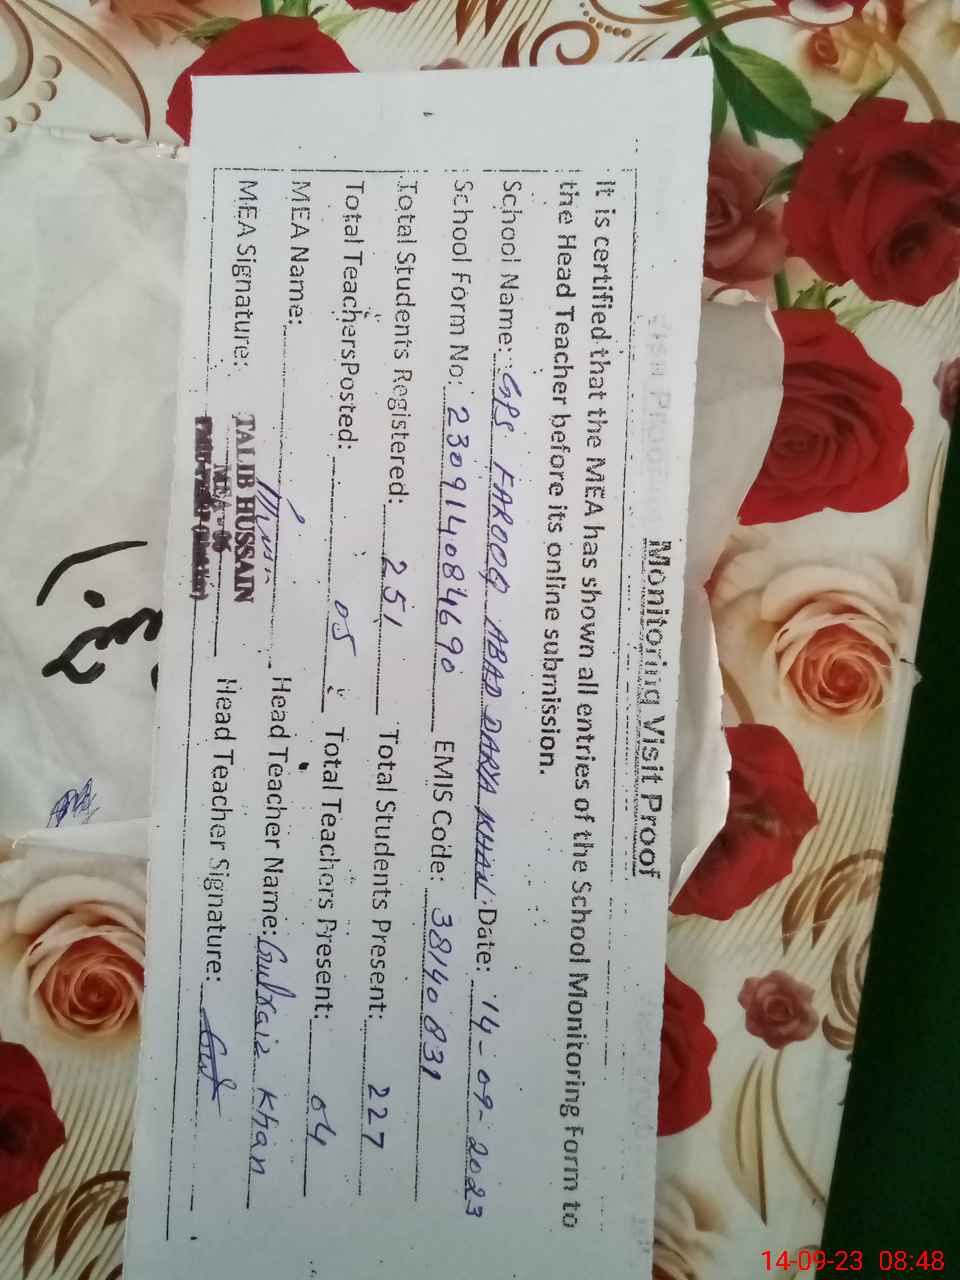 Monitoring Visit Proof
It is certified that the MEA has shown all entries of the School Monitoring Form to
the Head Teacher before its online submission.
School Name: GPS FAROOQ ABAD DARYA KHAN Date: 14-09-2023
School Form No: 230914084690 EMIS Code: 38140831
Total Students Registered: 251 Total Students Present: 227
Total Teachers Posted: 05 Total Teachers Present: 04
MEA Name: Head Teacher Name: Gulraiz Khan
MEA Signature: Head Teacher Signature:
TALIB HUSSAIN
MEA-06
14-09-23 08:48